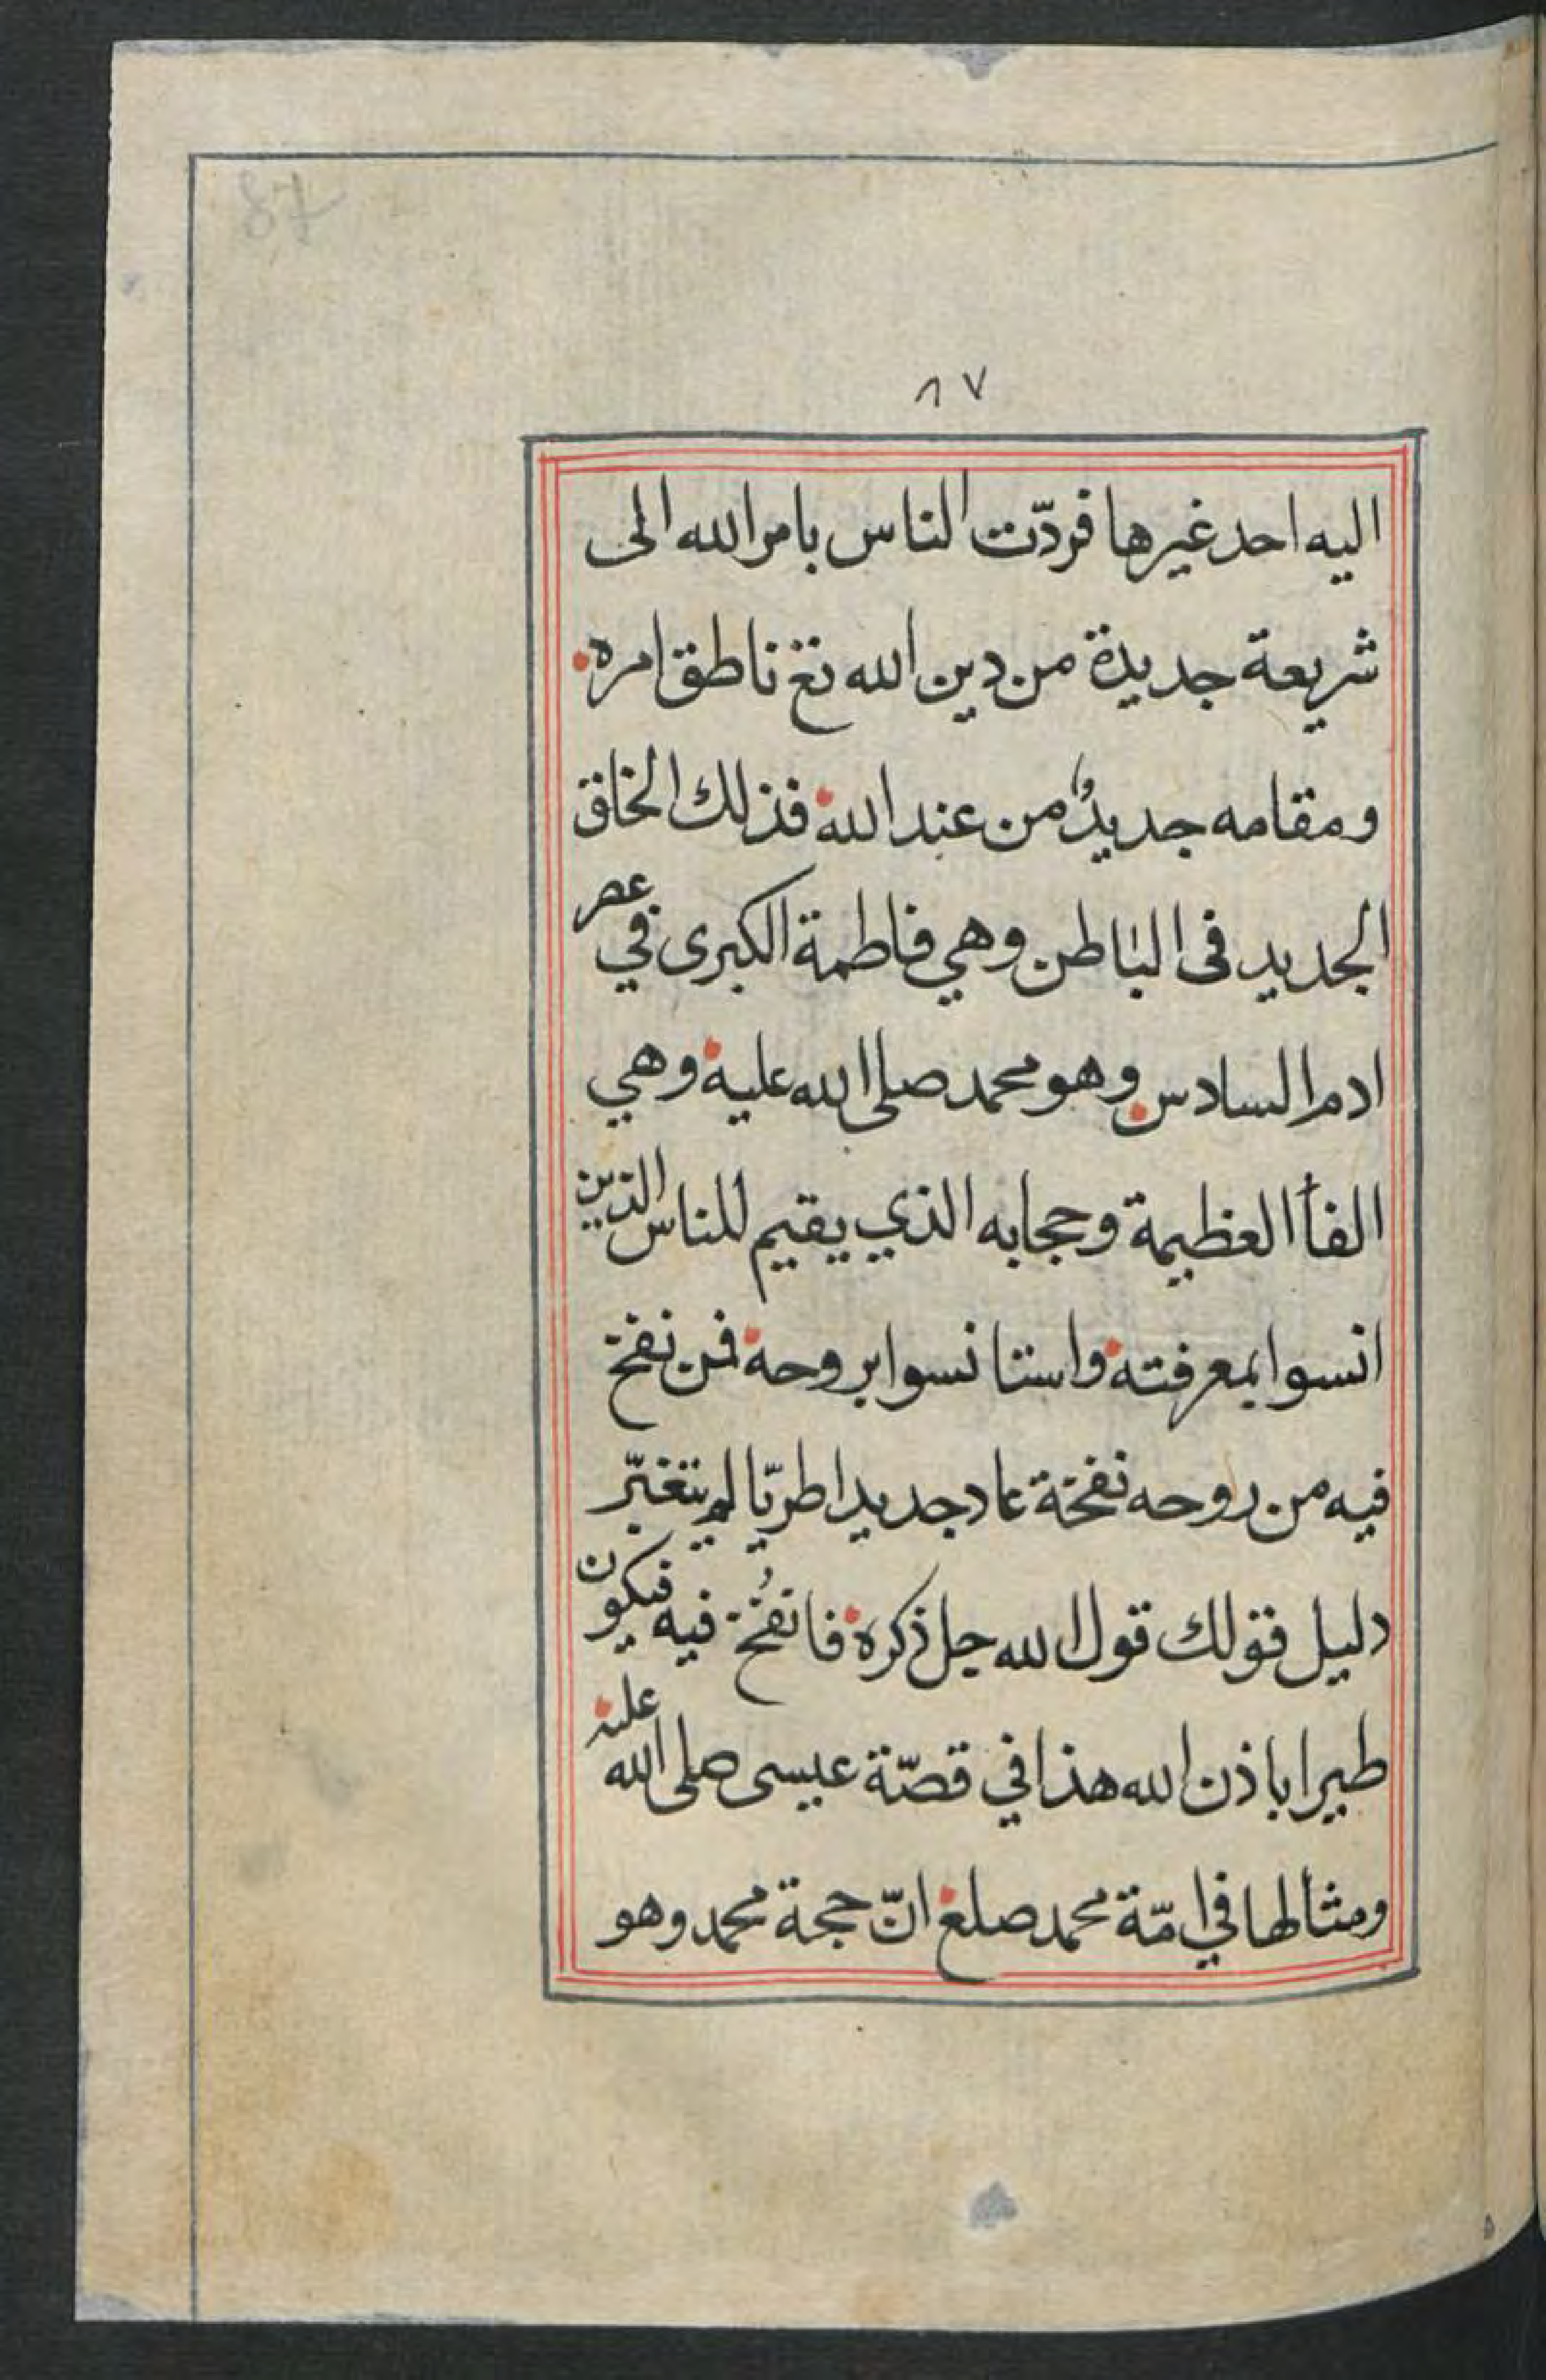 87
٨٧
اليه احد غيرها فردّت الناس بامر الله الى
شريعة جديدة من دين الله تع ناطق امره
ومقامه جديدٌ من عند الله فذلك الخلق
الجديد فى الباطن وهي فاطمة الكبرى في عصر
ادم السادس وهو محمد صلى الله عليه وهي
الفأ العظيمة وحجابه الذي يقيم للناس الذين
انسوا بمعرفته واستانسوا بروحه فمن نفخ
فيه من روحه نفخة عاد جديدا طريّا لم يتغيّر
دليل قولك قول الله جل ذكره فانفُخ فيه فيكون
طيرا باذن الله هذا في قصّة عيسى صلى الله عليه
ومثالها في امّة محمد صلع انّ حجة محمد وهو